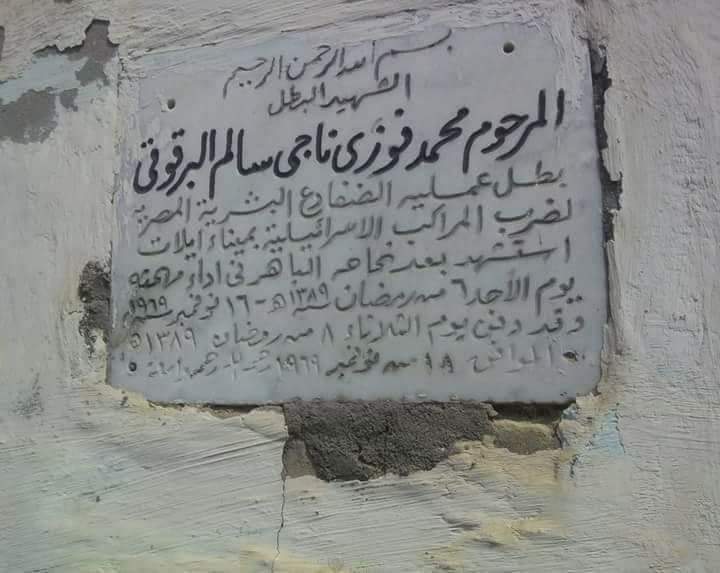 بسم الله الرحمن الرحيم
الشهيد البطل
المرحوم محمد فوزى ناجى سالم البرقوقى
بطل عملية الضفادع البشرية المصرية
لضرب المراكب الاسرائيلية بميناء ايلات
استشهد بعد نجاحه الباهر فى اداء مهمته
يوم الأحد ٦ من رمضان سنة ١٣٨٩هـ - ١٦ نوفمبر سنة ١٩٦٩
وقد دفن يوم الثلاثاء ٨ من رمضان ١٣٨٩ هـ
الموافق ١٨ من نوفمبر ١٩٦٩ رحمه الله رحمة واسعة